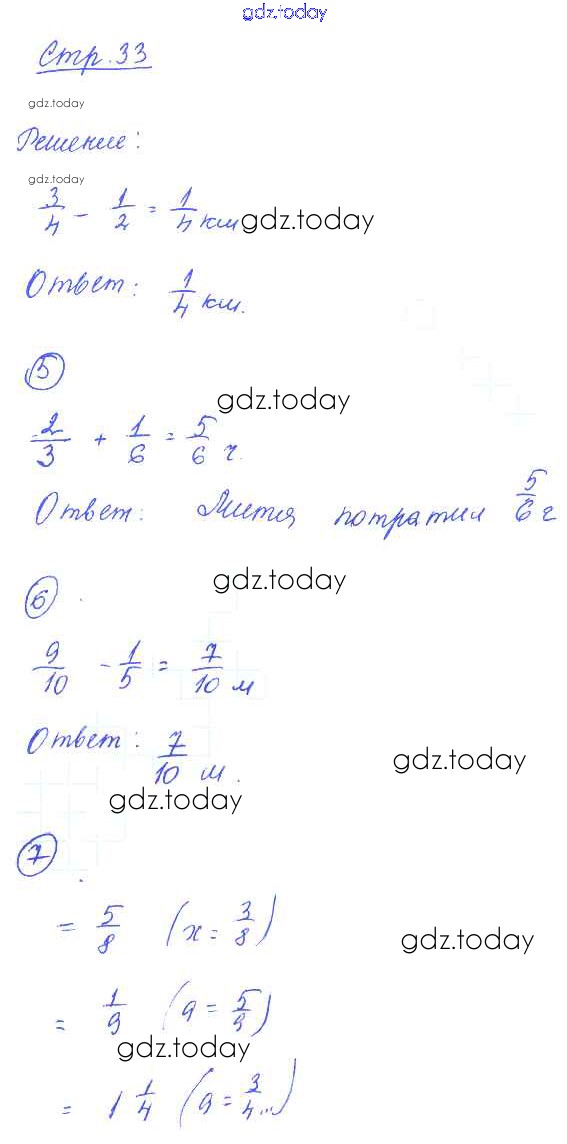 gdz.today
Стр. 33
gdz.today
Решение:
gdz.today
3/4 - 1/2 = 1/4 км gdz.today
Ответ: 1/4 км.
5
gdz.today
2/3 + 1/6 = 5/6 ч.
Ответ: Митя потратил 5/6 ч
gdz.today
6
9/10 - 1/5 = 7/10 м
Ответ: 7/10 м.
gdz.today
gdz.today
7
= 5/8 (x = 3/8)
gdz.today
= 1/9 (a = 5/9)
gdz.today
= 1 1/4 (a = 3/4...)